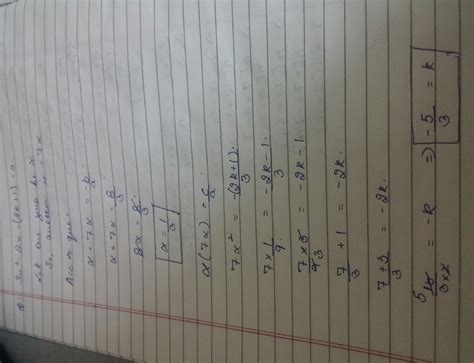 Q. 3x² + 8x - (2k+1) = 0
Let one zero be α
So, another is 7α
Accor to que.
α + 7α = -b/a
α + 7α = 8/3
8α = 8/3
α = 1/3
α(7α) = c/a
7α² = -(2k+1)/3
7 × 1/9 = -2k-1/3
7 × 3/9 = -2k-1
7/3 + 1 = -2k.
7+3/3 = -2k.
5 10/3×2 = -k ⇒ -5/3 = k